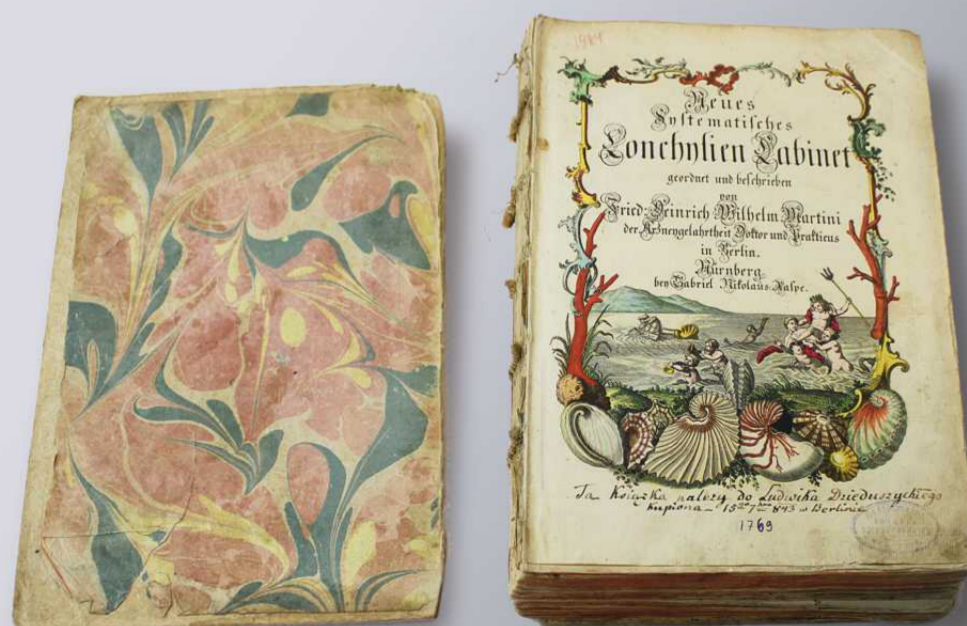 1984
Neues
Systematisches
Conchylien Cabinet
geordnet und beschrieben
von
Fried: Heinrich Wilhelm Martini
der Arzneygelahrtheit Doktor und Prakticus
in Berlin.
Nürnberg
bey Gabriel Nikolaus Raspe.
Ta Książka należy do Ludwika Dzieduszyckiego
kupiona – 15go 7bra 843 w Berlinie
1769